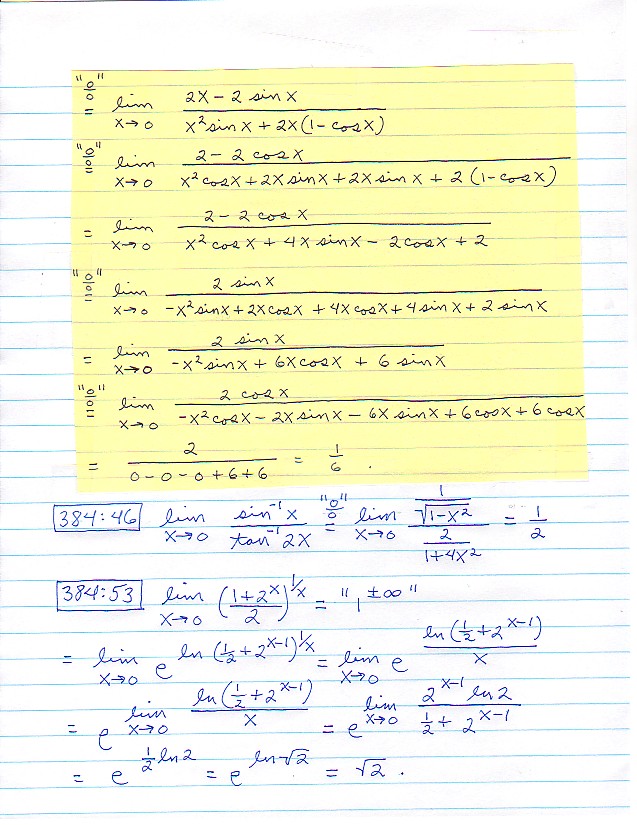 "0/0" = lim x→0 (2x - 2 sin x) / (x² sin x + 2x(1 - cos x))
"0/0" = lim x→0 (2 - 2 cos x) / (x² cos x + 2x sin x + 2x sin x + 2(1 - cos x))
= lim x→0 (2 - 2 cos x) / (x² cos x + 4x sin x - 2 cos x + 2)
"0/0" = lim x→0 (2 sin x) / (-x² sin x + 2x cos x + 4x cos x + 4 sin x + 2 sin x)
= lim x→0 (2 sin x) / (-x² sin x + 6x cos x + 6 sin x)
"0/0" = lim x→0 (2 cos x) / (-x² cos x - 2x sin x - 6x sin x + 6 cos x + 6 cos x)
= 2 / (0 - 0 - 0 + 6 + 6) = 1/6 .
384:46 lim x→0 (sin⁻¹ x) / (tan⁻¹ 2x) "0/0" = lim x→0 (1/√(1-x²)) / (2/(1+4x²)) = 1/2
384:53 lim x→0 ((1+2^x)/2)^(1/x) = "1^(±∞)"
= lim x→0 e^(ln(1/2 + 2^(x-1))^(1/x)) = lim x→0 e^(ln(1/2 + 2^(x-1)) / x)
= e^(lim x→0 ln(1/2 + 2^(x-1)) / x) = e^(lim x→0 (2^(x-1) ln 2) / (1/2 + 2^(x-1)))
= e^(1/2 ln 2) = e^(ln √2) = √2 .